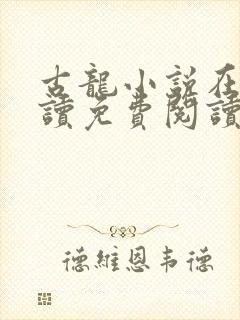 古龍小説在
讀免費閱讀
德維恩韦德